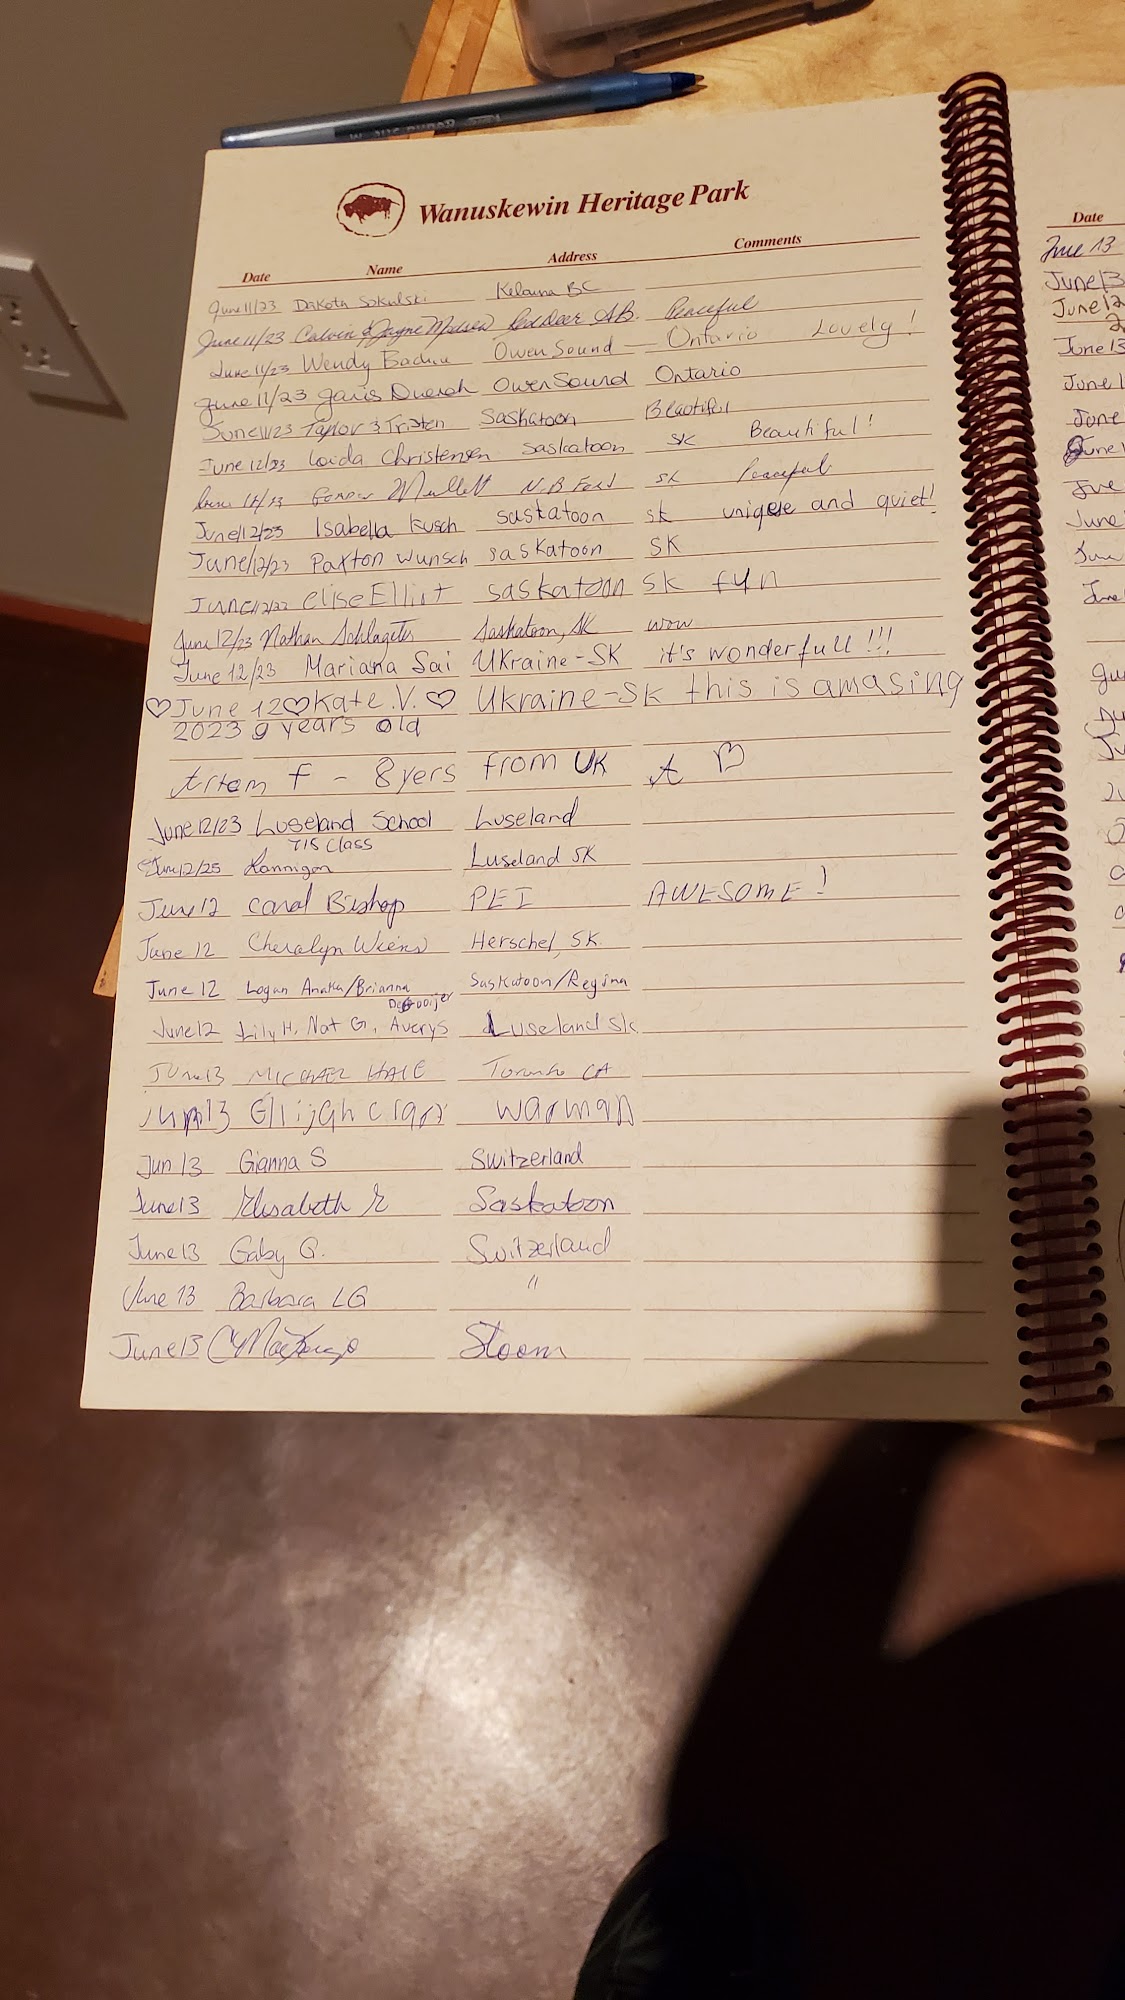 Wanuskewin Heritage Park
Date Name Address Comments
June 11/23 Dakota Sokulski Kelowna BC
June 11/23 Calvin & Jayne Red Deer AB. Peaceful
June 11/23 Wendy Owen Sound — Ontario Lovely!
June 11/23 Owen Sound Ontario
June 11/23 Taylor & Tristen Saskatoon Beautiful
June 12/23 Loida Christensen Saskatoon SK Beautiful!
Mullett SK Peaceful
June/12/23 Isabella Kusch saskatoon sk uniqese and quiet!
June/12/23 Paxton Wunsch saskatoon SK
June/12/23 eliseElliot saskatoon sk fyn
June 12/23 Nathan Schlageter Saskatoon, SK wow
June 12/23 Mariana Sai Ukraine-SK it's wonderfull!!!
♡June 12♡Kate.V.♡ Ukraine-Sk this is amasing
2023 9 years old
Artem f - 8yers from UK A ♡
June 12/23 Luseland School Luseland
7/8 Class
June 12/23 Kannigan Luseland SK
June 12 Carol Bishop PEI AWESOME!
June 12 Cheralyn Wiens Herschel, SK
June 12 Logan Anaka/Brianna Saskatoon/Regina
June 12 Lily H, Nat G, Averys Luseland Sk
June 13 MICHAEL HALE Toronto CA
Jun 13 Ellijah warman
Jun 13 Gianna S Switzerland
June 13 Elisabeth E Saskatoon
June 13 Gaby G. Switzerland
June 13 Barbara LG "
June 13 C MacKenzie Stoon
Date
June 13
June 13
June 12
June 13
June
June
June
June
June